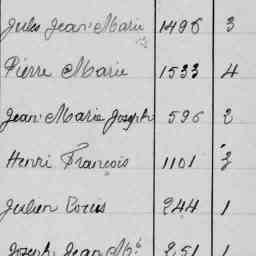 Jules Jean Marie 1496 3
Pierre Marie 1533 4
Jean Marie Joseph 596 2
Henri François 1101 3
Julien 244 1
Joseph Jean Mie 251 1